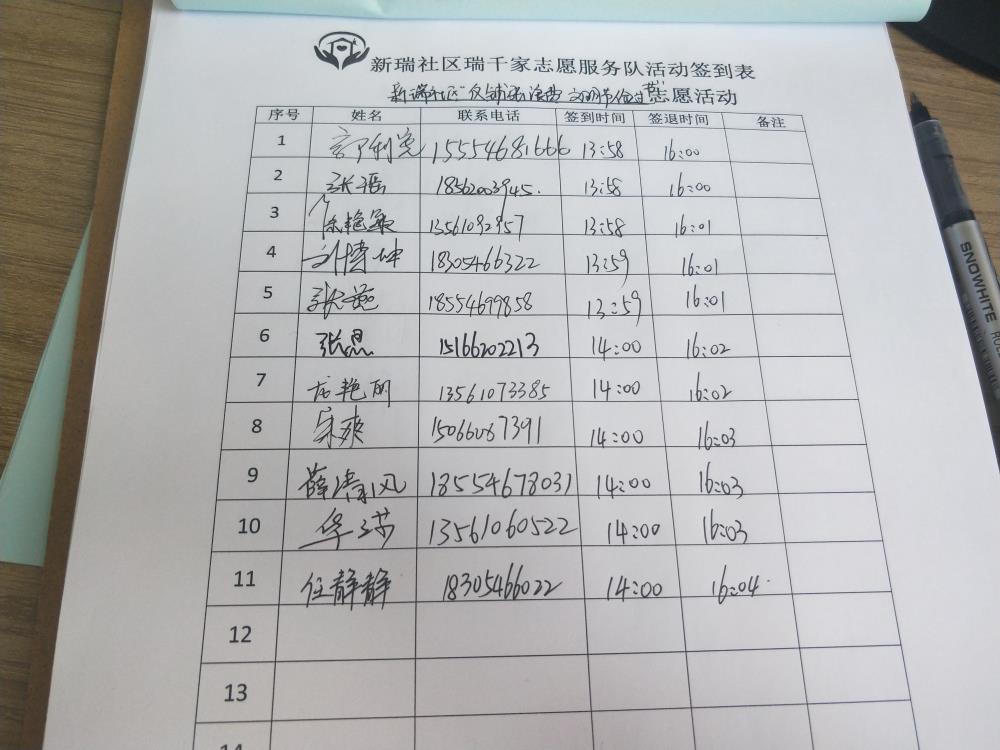 新瑞社区瑞千家志愿服务队活动签到表
新瑞社区 反铺张浪费 文明节俭过节 志愿活动
序号 姓名 联系电话 签到时间 签退时间 备注
1 15554681666 13:58 16:00
2 张瑶 18562003945. 13:58 16:00
3 徐艳敏 13561092957 13:58 16:01
4 刘博坤 18305466322 13:59 16:01
5 张艳 18554699858 13:59 16:01
6 张恩 15166202213 14:00 16:02
7 艳丽 13561073385 14:00 16:02
8 宋爽 15066087391 14:00 16:03
9 薛清风 18554678031 14:00 16:03
10 华 13561060522 14:00 16:03
11 任静静 18305466022 14:00 16:04
12
13
14
SNOWHITE